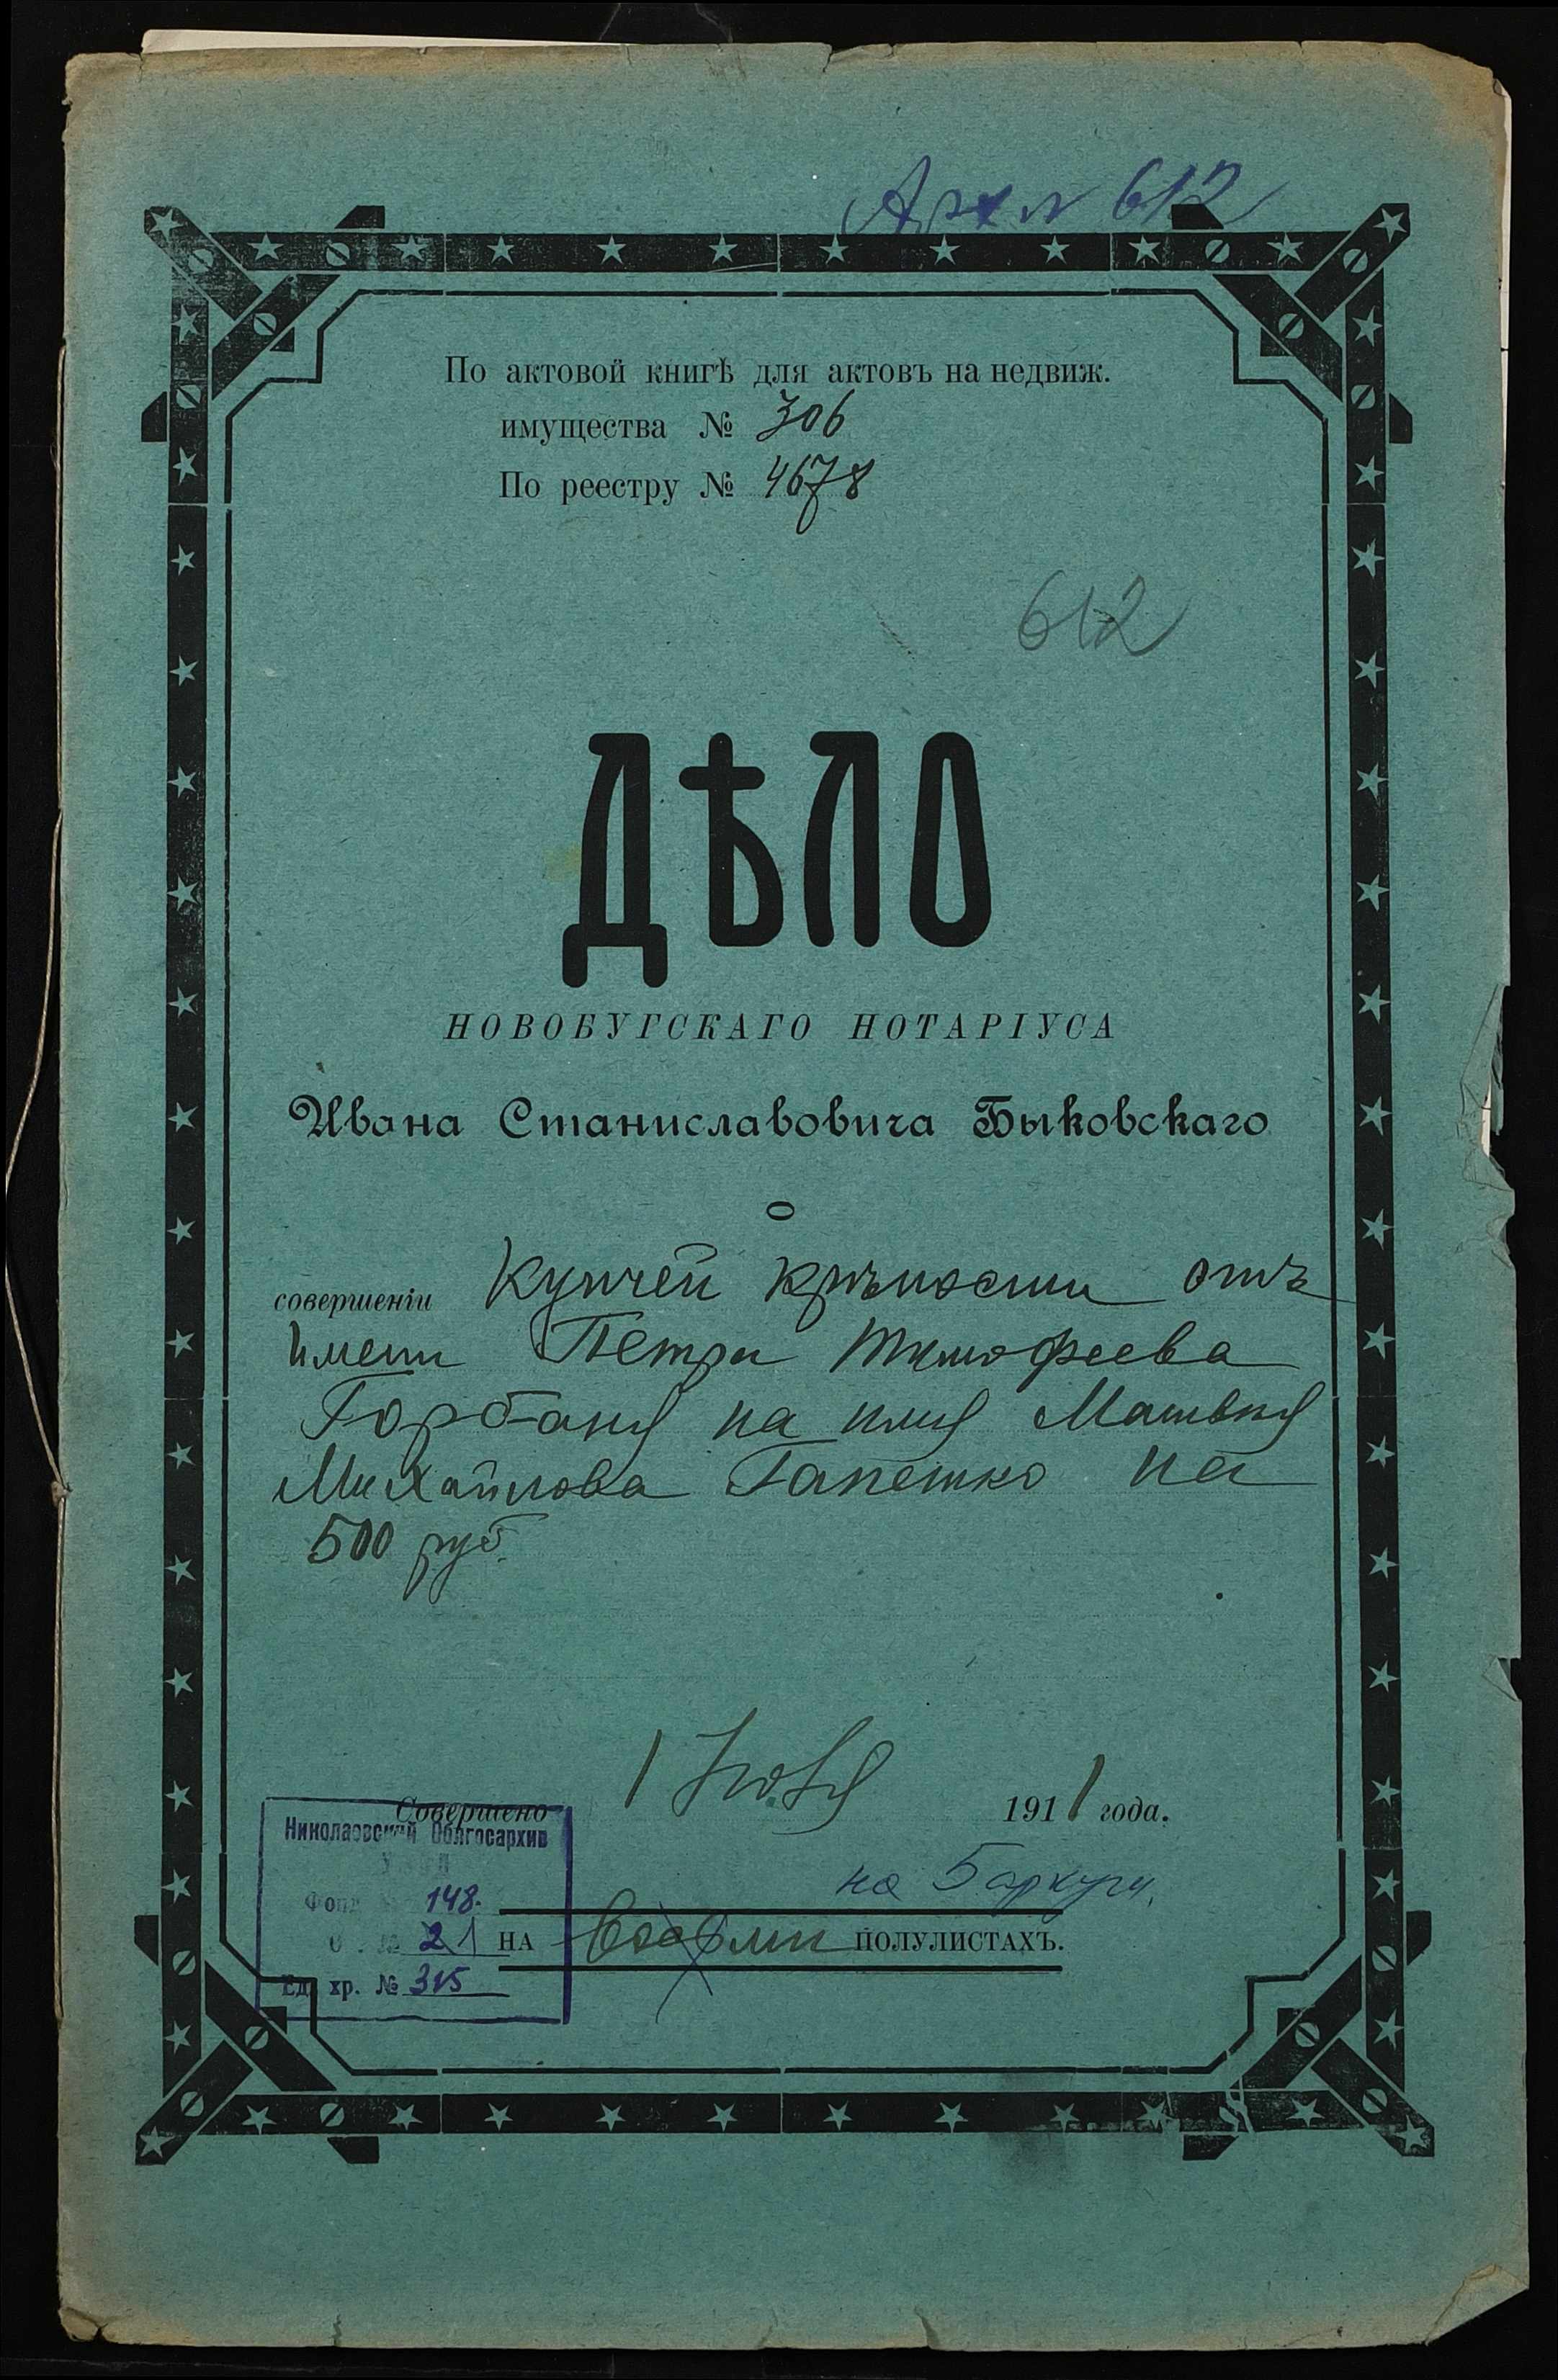 Арх № 612
По актовой книгѣ для актовъ на недвиж.
имущества № 306
По реестру № 4678
612
ДѢЛО
НОВОБУГСКАГО НОТАРІУСА
Ивана Станиславовича Быковскаго
О
совершеніи Купчей крѣпости отъ
имени Петра Тимофеева
Горбаня на имя Матвея
Михайлова Гапешко на
500 руб.
Совершено 1 Іюля 1911 года.
Николаевский Облгосархив
Фонд № 148.
О № 21
Ед. хр. № 315
на 5 аркуш.
НА восьми ПОЛУЛИСТАХЪ.